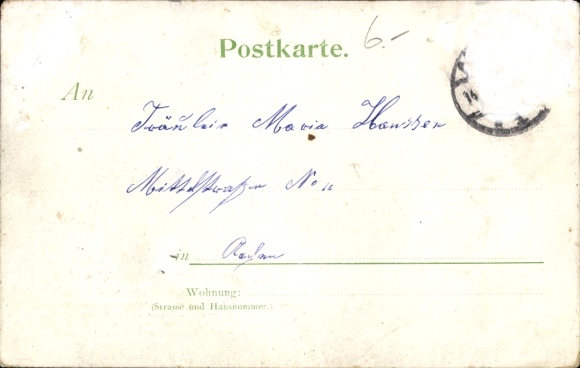 Postkarte. 6.-
An
Fräulein Maria Hanssen
Mittelstrasse No 11
in Aachen
Wohnung:
(Strasse und Hausnummer.)